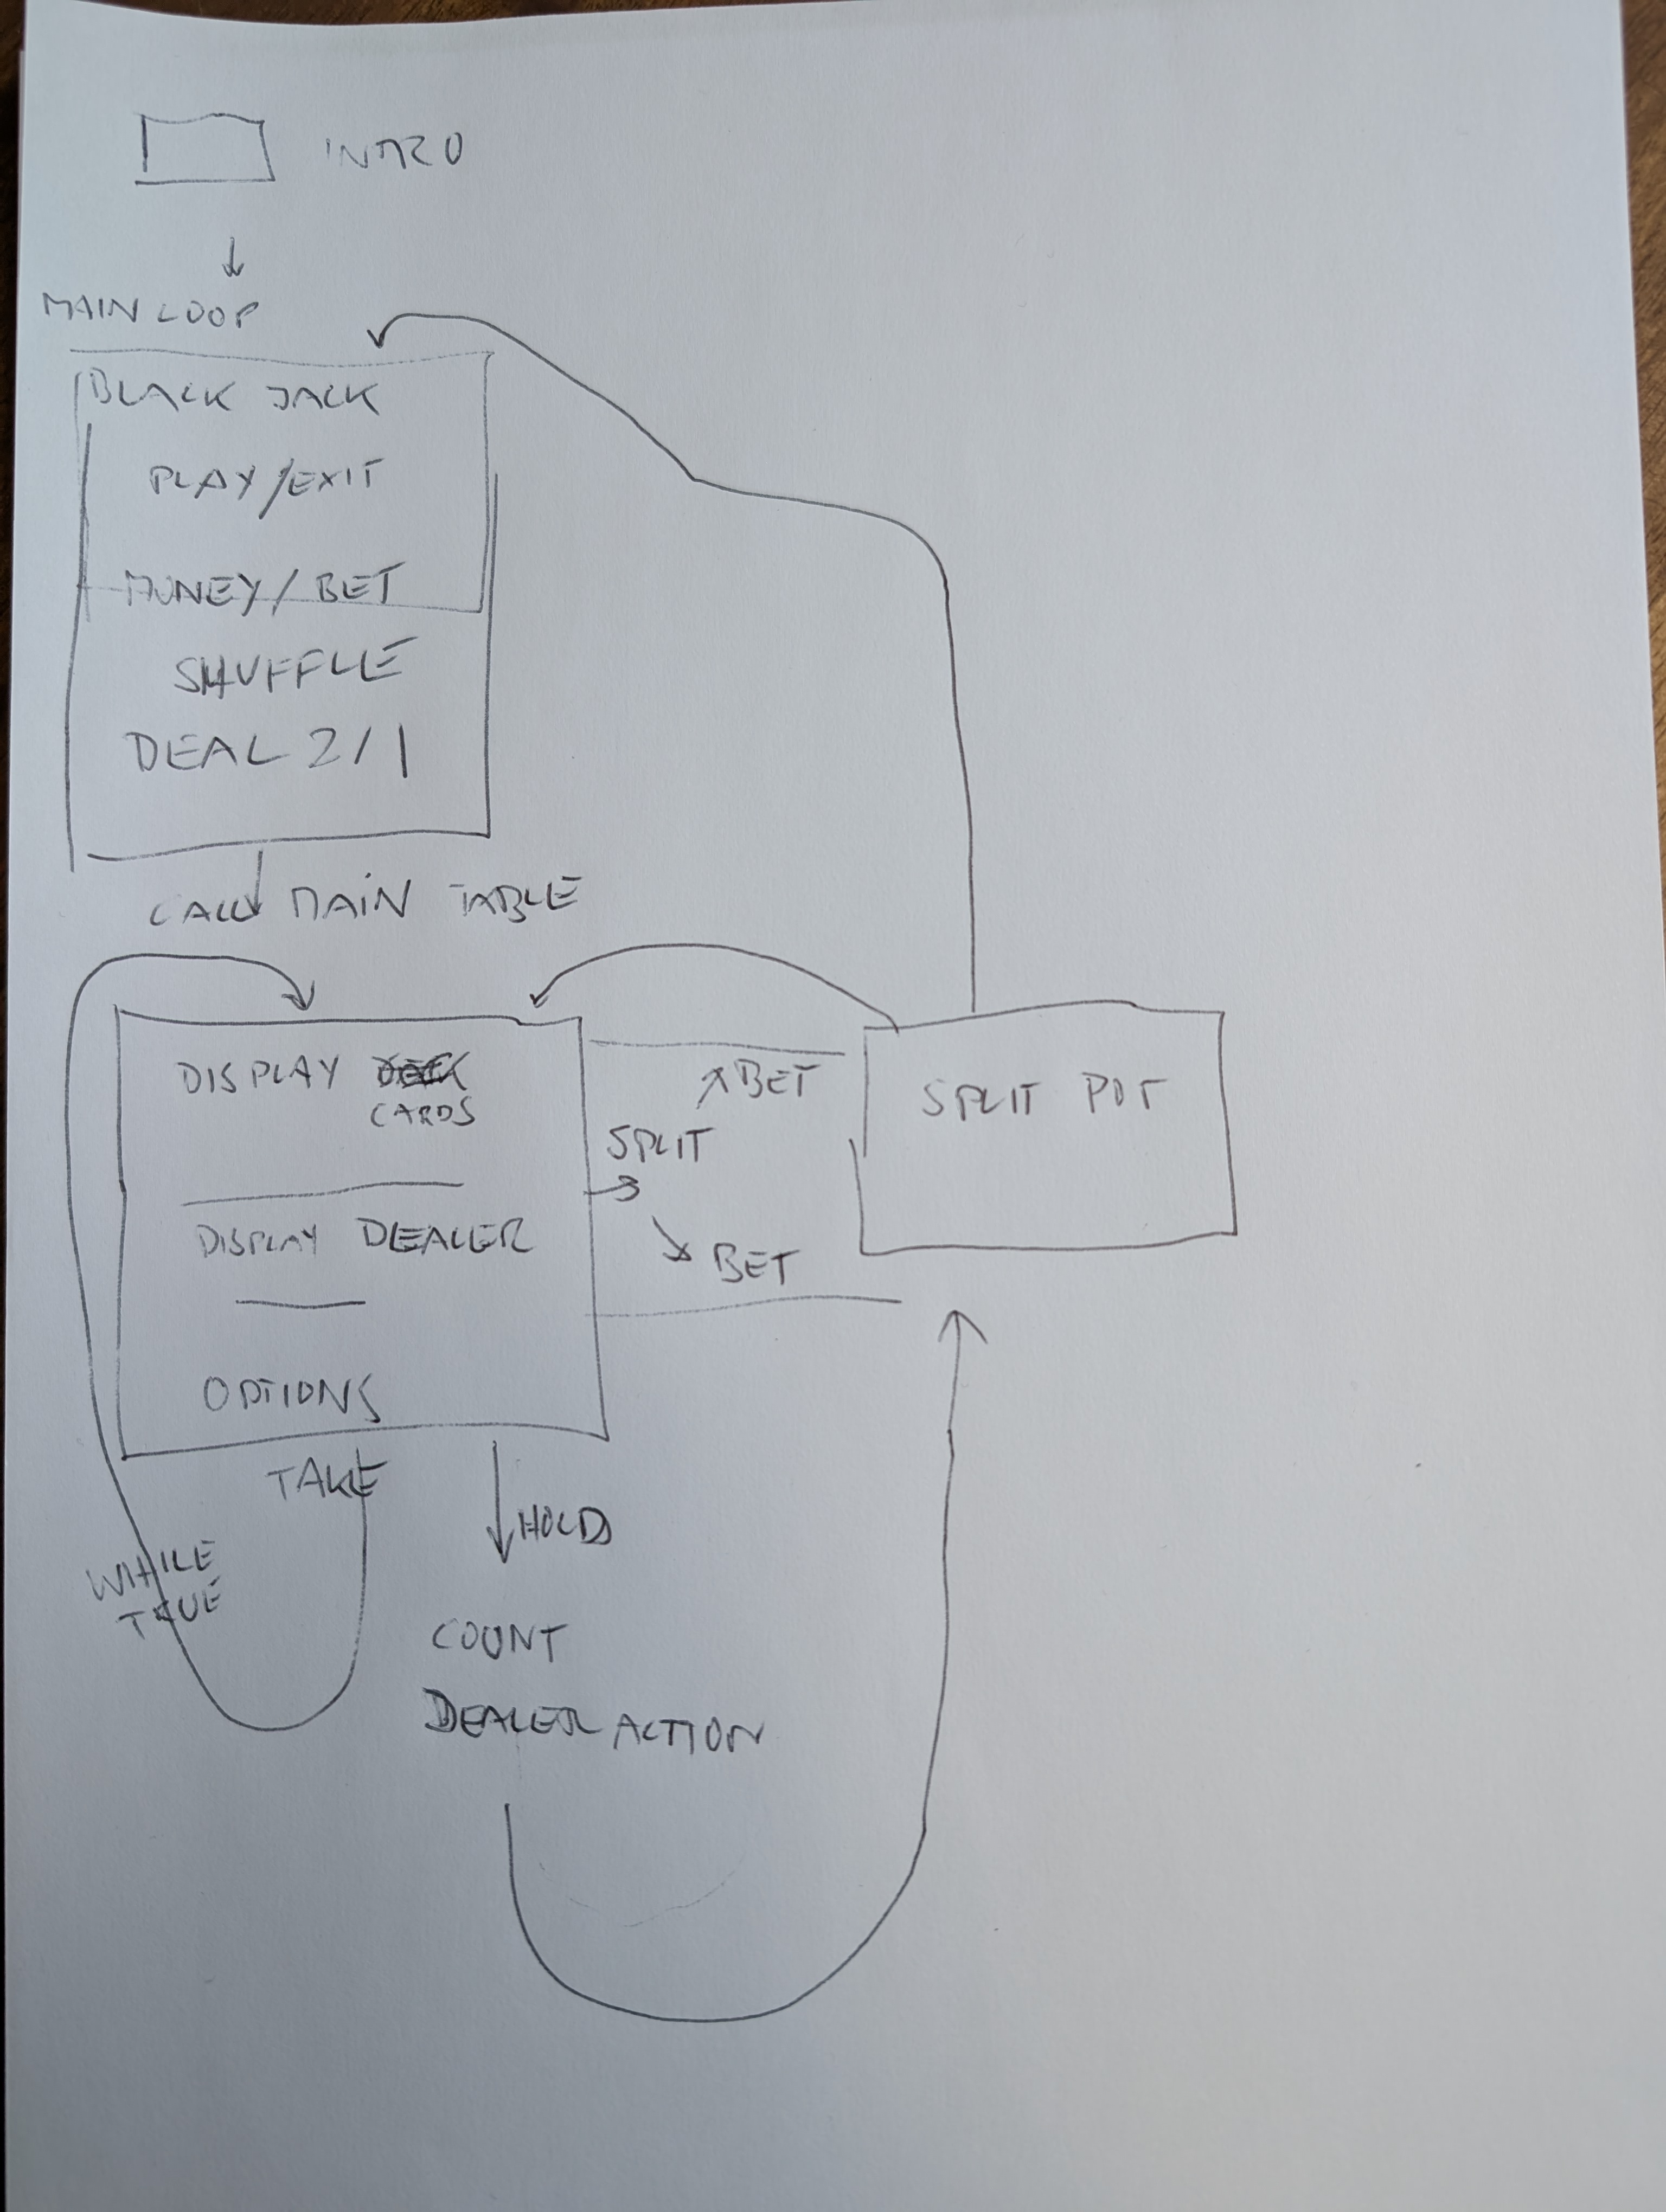 INTRO
MAIN LOOP
BLACK JACK
PLAY/EXIT
MONEY/BET
SHUFFLE
DEAL 2/1
CALL MAIN TABLE
DISPLAY
CARDS
DISPLAY DEALER
OPTIONS
BET
SPLIT
BET
SPLIT POT
TAKE
HOLD
WHILE
TRUE
COUNT
DEALER ACTION